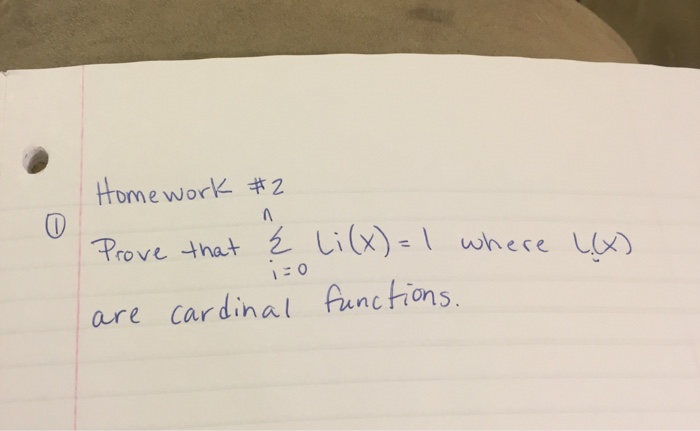 Homework #2
① Prove that n Σ i=0 Li(x) = 1 where Li(x)
are cardinal functions.